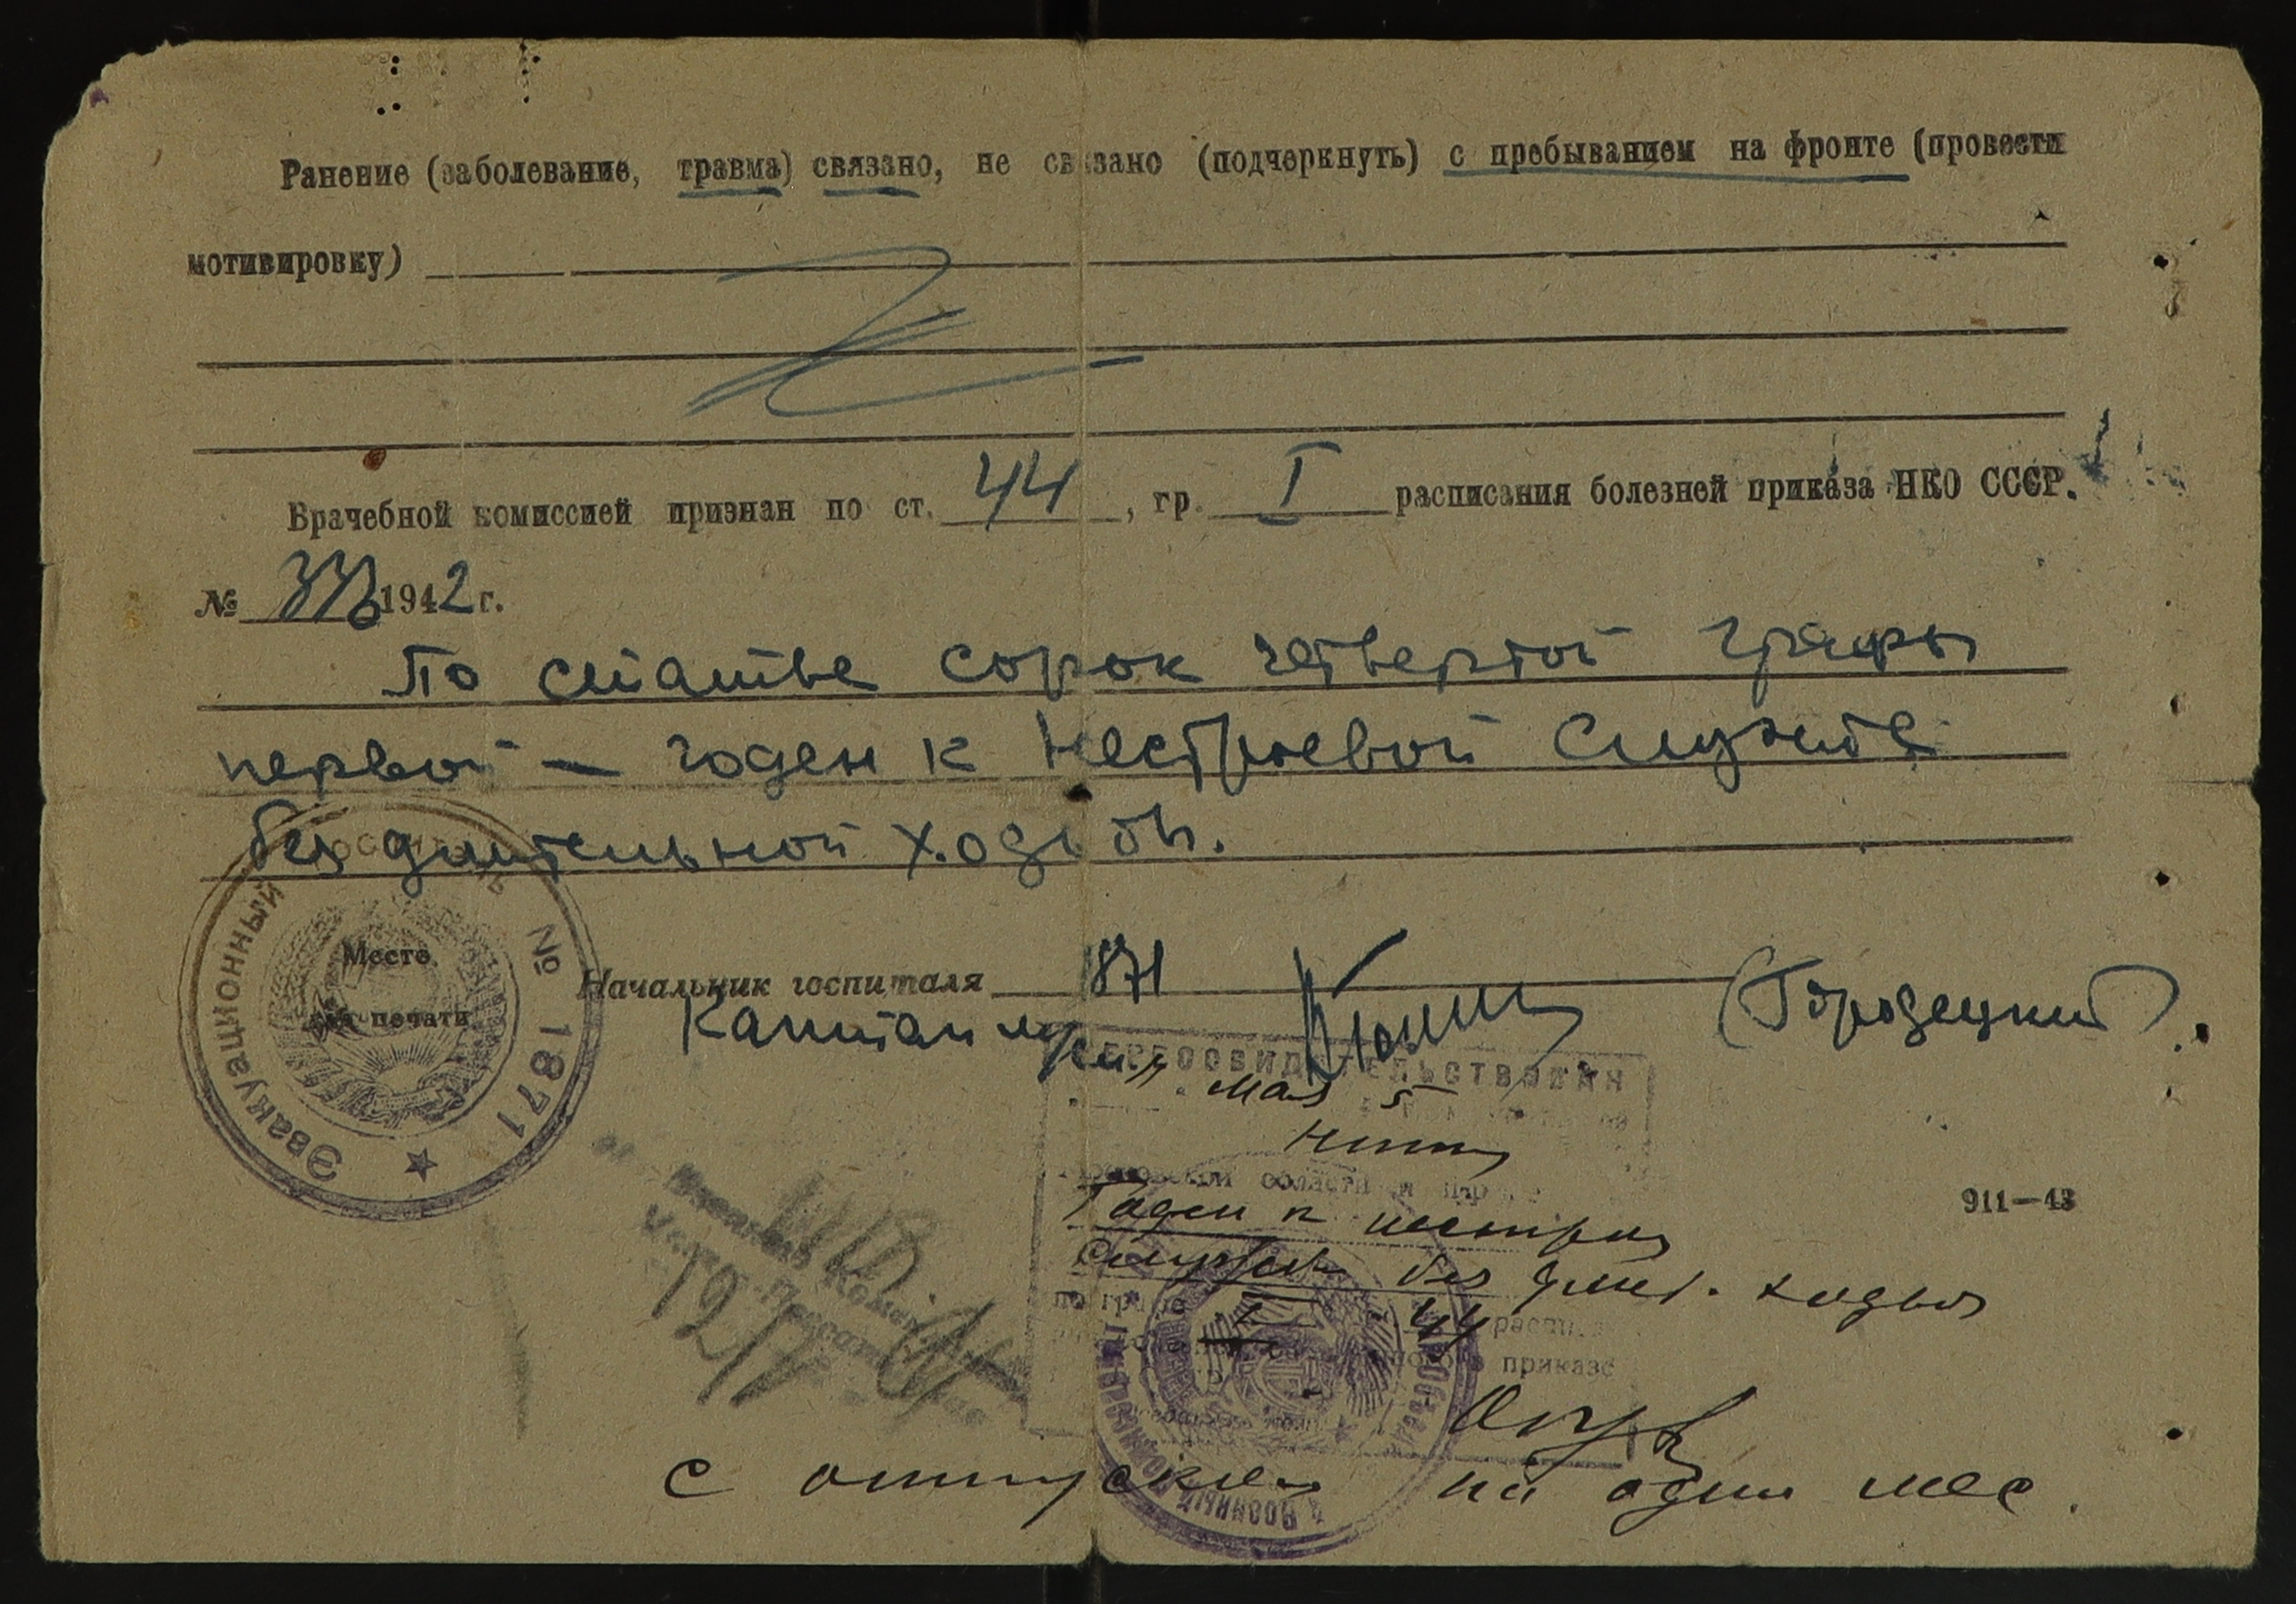 Ранение (заболевание, травма) связано, не связано (подчеркнуть) с пребыванием на фронте (провести
мотивировку)
Врачебной комиссией признан по ст. 44, гр. I расписания болезней приказа НКО СССР.
№ 336 1942 г.
По статье сорок четвертой графы
первой — годен к нестроевой службе
без длительной ходьбы.
Эвакуационный госпиталь № 1871
Место
для печати
Начальник госпиталя 1871 (Городецкий).
Капитан м/сл.
Переосвидетельствован
мая 5
области и
Годен к нестроев
службе без длит. ходьбы
по графе I 44 распис
приказа
с отпуском на один мес.
911—43